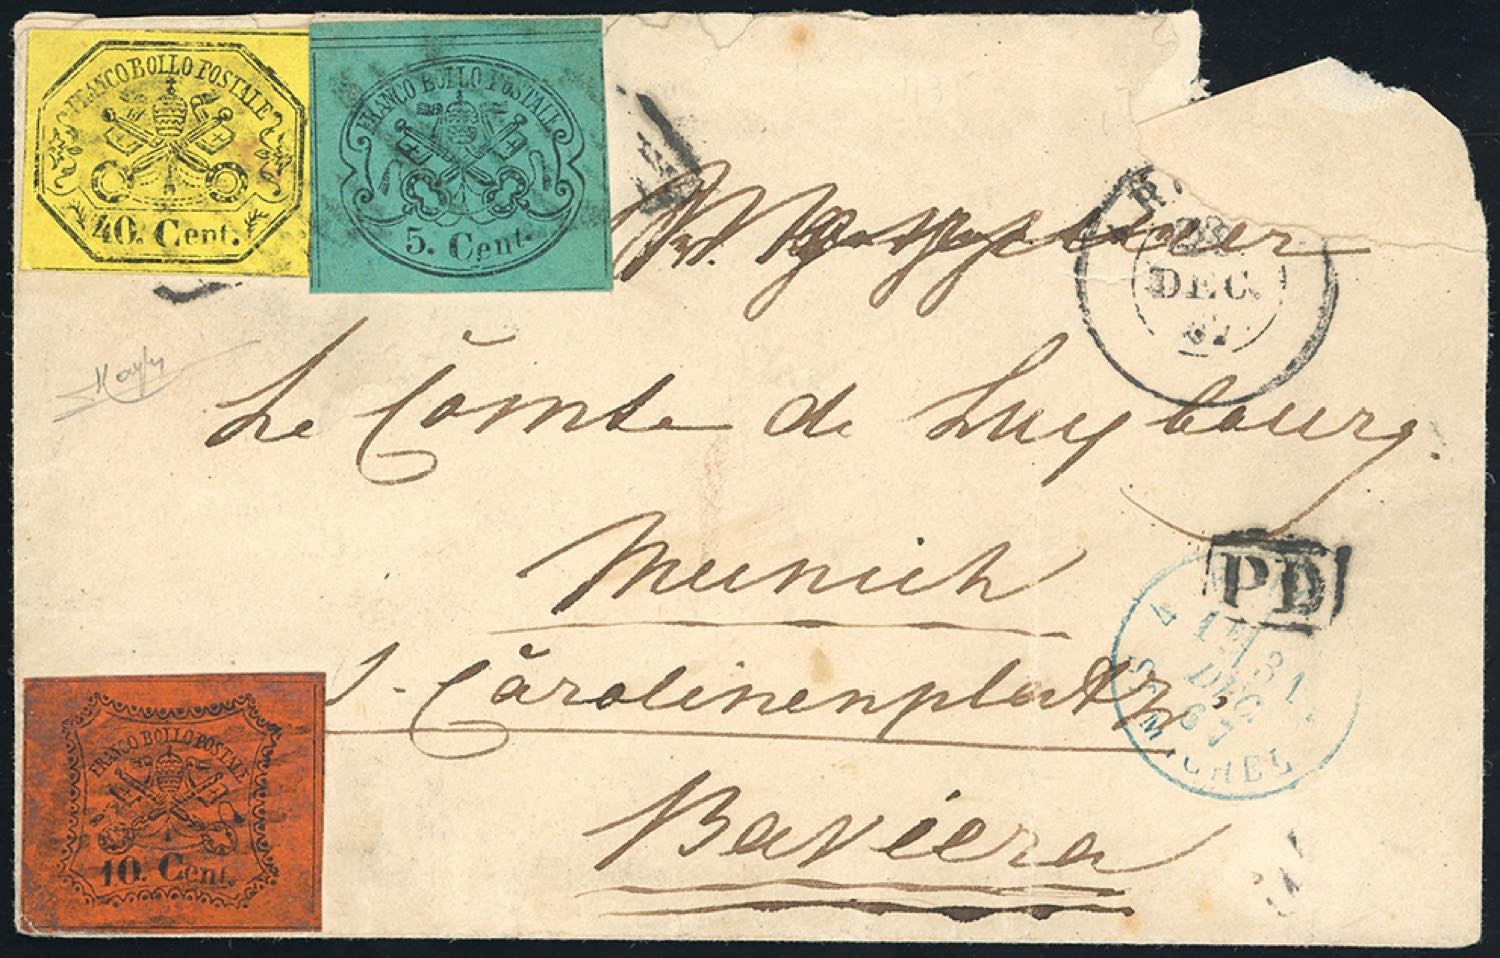 FRANCO BOLLO POSTALE
40. Cent.
FRANCO BOLLO POSTALE
5. Cent.
DEC.
67
Le Comte de Luxbourg.
Munich
PD
Carolinenplatz
4
31
DEC
67
ST MICHEL
Baviera
FRANCO BOLLO POSTALE
10. Cent.